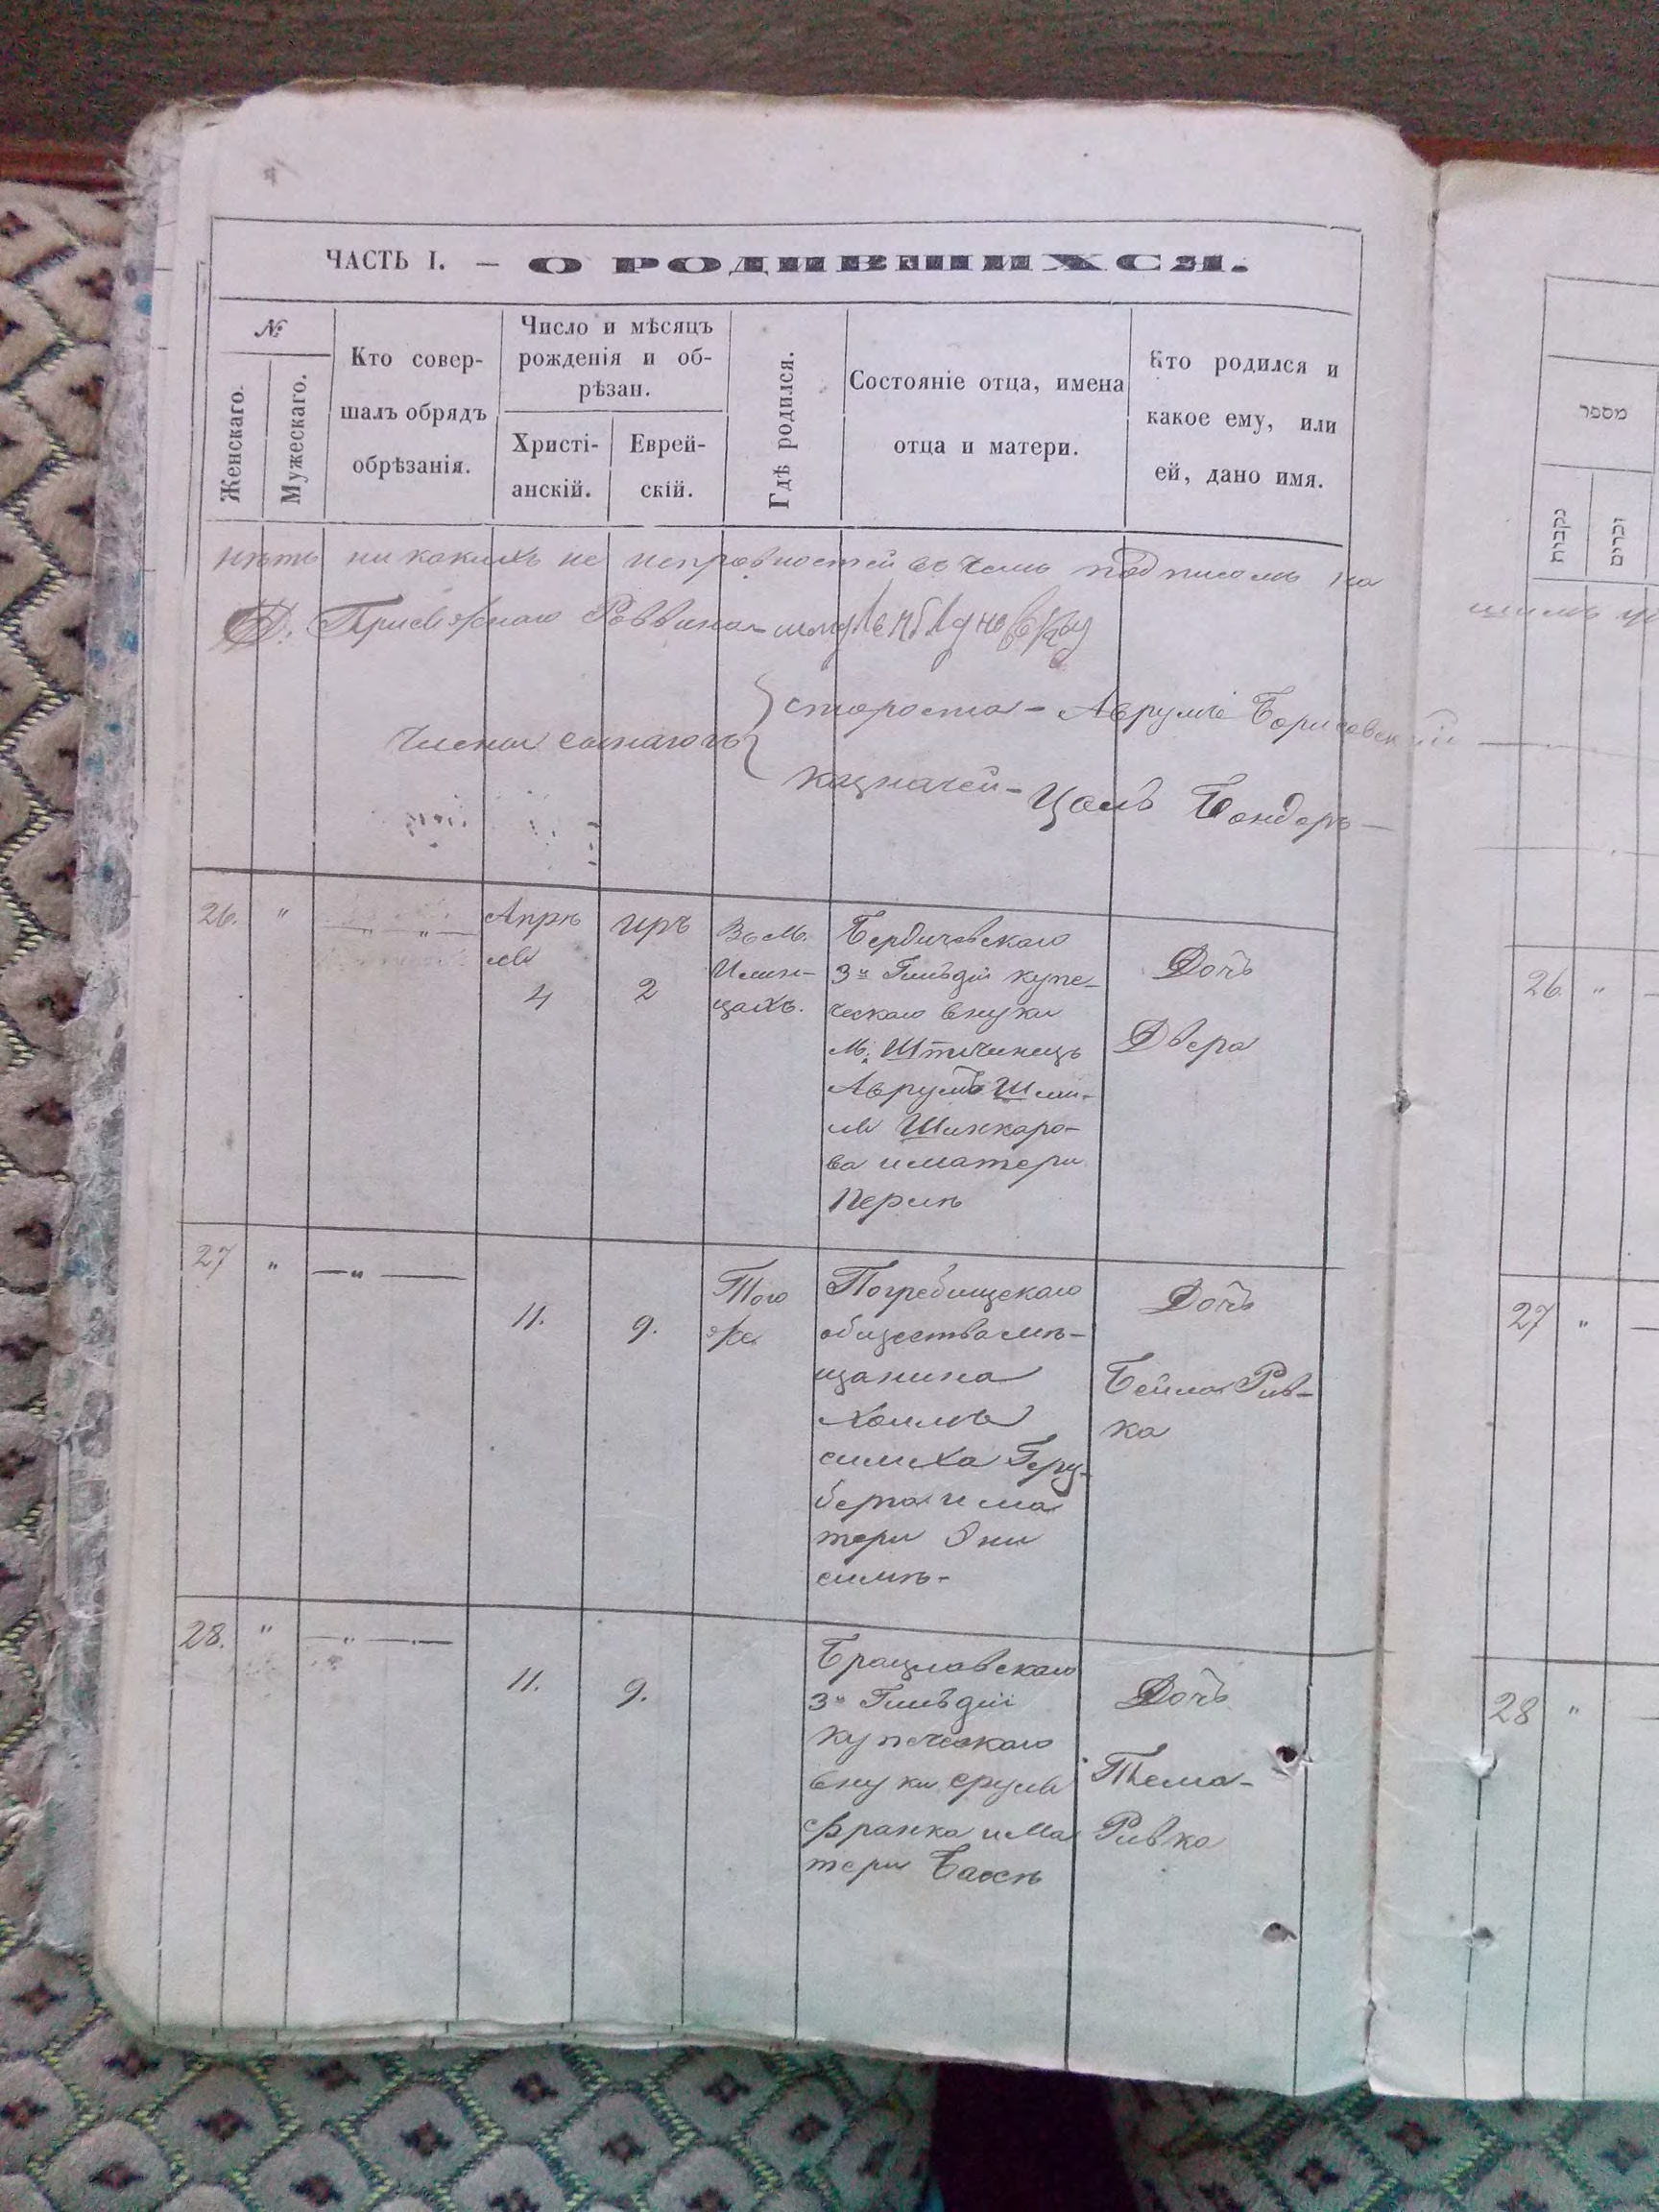 ЧАСТЬ I. — О РОДИВШИХСЯ.
№
Женскаго.
Мужескаго.
Кто совер-
шалъ обрядъ
обрѣзанія.
Число и мѣсяцъ
рожденія и об-
рѣзан.
Христі-
анскій.
Еврей-
скій.
Гдѣ родился.
Состояніе отца, имена
отца и матери.
Кто родился и
какое ему, или
ей, дано имя.
нѣтъ никакихъ не исправностей въ чемъ подписомъ
Раввина
Члены
староста - Аврумъ Борисовскій
казначей - Бондарь
26. " — " " —
Апрѣ
ля
4
иръ
2
Въ м.
Илин-
цахъ.
Бердичевскаго
3й Гильдіи купе-
ческаго внука
Аврумъ Шми-
ля Шинкаро-
ва и матери
Перли
Дочь
Двера
27 " — " —
11.
9.
Того
же
Погребищскаго
общества мѣ-
щанина
Хаима
и ма
тери
Дочь
Бейла Рив-
ка
28. " — " —
11.
9.
Брацлавскаго
3й Гильдіи
купеческаго
внука сруля
Франка и ма
тери Баси
Дочь
Тема-
Ривка
מספר
נקבות
זכרים
26. "
27 "
28 "